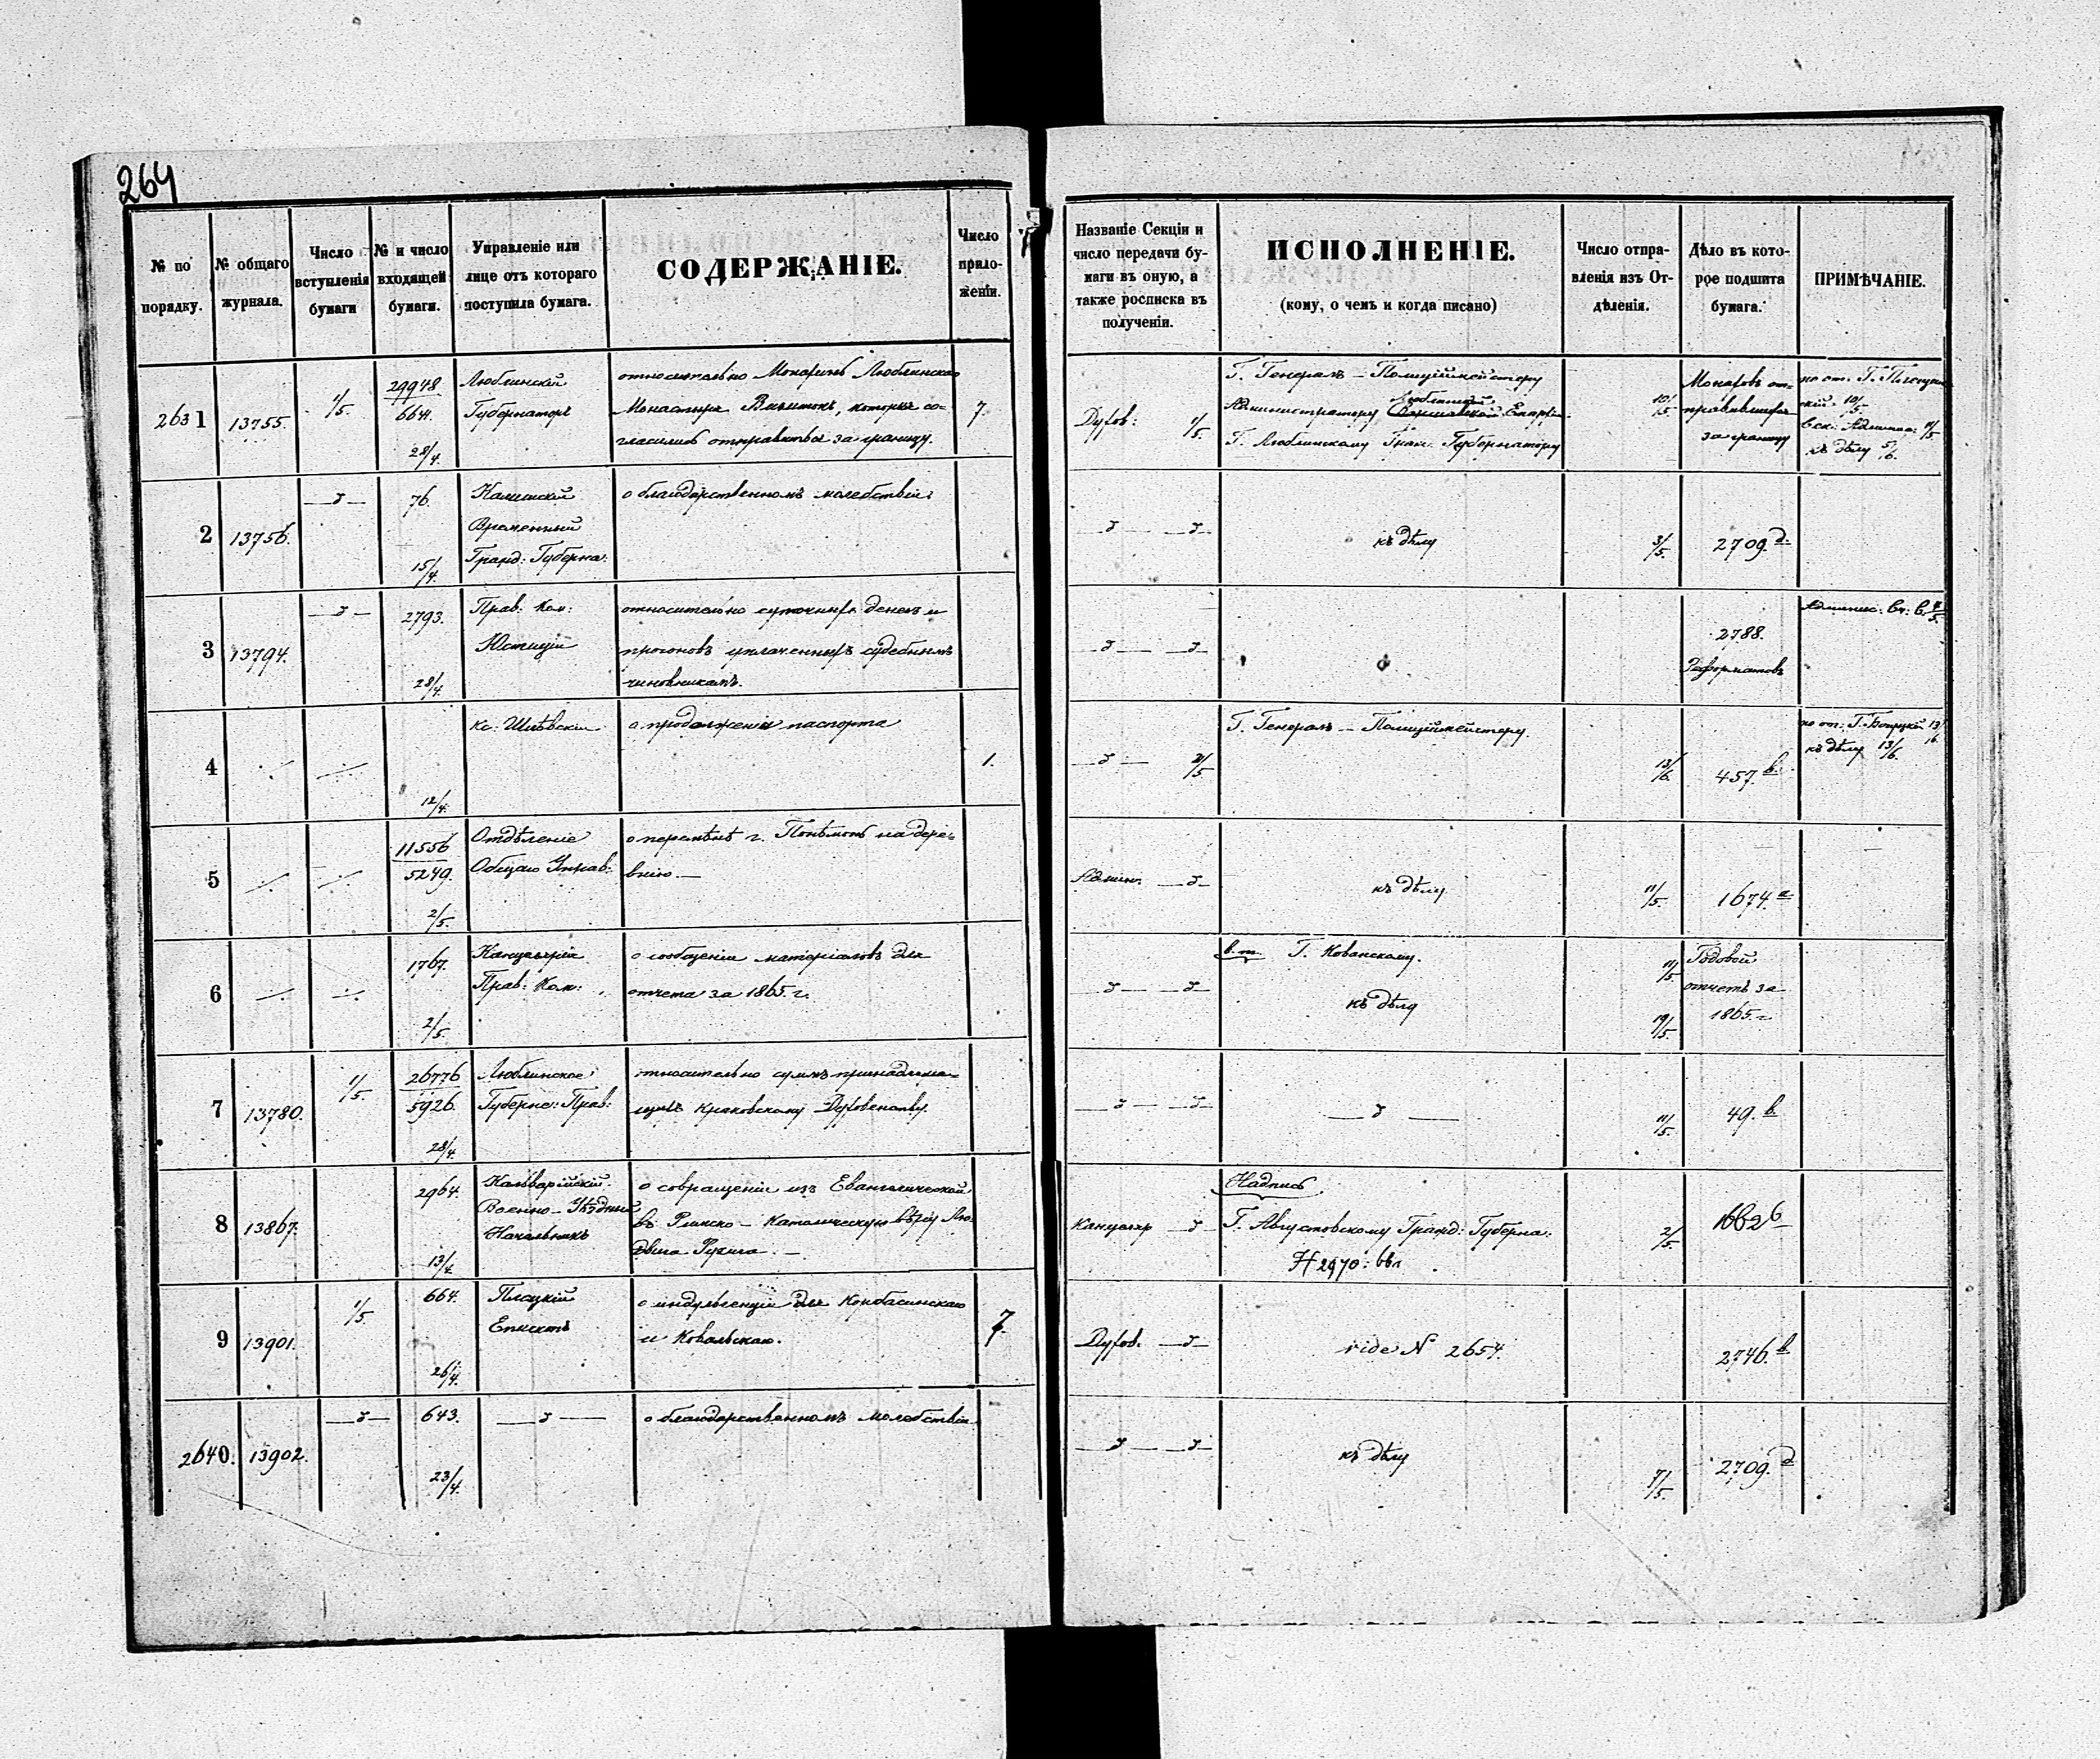 264
№ по порядку.
№ общаго журнала.
Число вступленія бумаги
№ и число входящей бумаги.
Управленіе или лице отъ котораго поступила бумага.
СОДЕРЖАНІЕ.
Число прило- женій.
Названіе Секціи и число передачи бу- маги въ оную, а также росписка въ полученіи.
ИСПОЛНЕНІЕ.
(кому, о чемъ и когда писано)
Число отпра- вленія изъ От- дѣленія.
Дѣло въ кото- рое подшита бумага.
ПРИМѢЧАНІЕ.
2631
13755.
1/5.
29948
6641.
28/4.
Люблинскій
Губернаторъ
относительно Монахинь Люблинскаго
Монастыря Визитокъ, которыя со-
гласились отправиться за границу.
7.
Духов: 1/5.
Г. Генералъ-Полиціймейстеру
Люблинской
Администратору Епархіи
Г. Люблинскому Граж. Губернатору
10/5
Монаховъ от-
правившихся
за границу
10/5.
къ дѣлу 5/6.
2
13756.
76.
15/4.
Временный
Гражд: Губерна:
о благодарственномъ молебствіи
къ дѣлу
3/5.
2709.д.
3
13794.
2793.
28/4.
Прав: Ком:
Юстиціи
относительно суточныхъ денегъ и
прогоновъ уплаченныхъ судебнымъ
чиновникамъ.
2788.
Реформатовъ
4
12/4.
Кс:
о продолженіи паспорта
1.
2/5
Г. Генералъ-Полиціймейстеру.
13/6.
457.в.
къ дѣлу 13/6.
5
11556
5249.
2/5.
Отдѣленіе
Общаго Управ:
о перемѣнѣ г. на дере-
вню.—
Админ.
къ дѣлу
11/5.
1674.а
6
1767.
2/5.
Канцелярія
Прав: Ком:
о сообщеніи матеріаловъ для
отчета за 1865.г.
Г. Кованскому.
къ дѣлу
11/5
19/5.
Годовой
отчетъ за
1865.г.
7
13780.
1/5.
26776
5926.
28/4.
Люблинское
Губернс: Прав:
относительно суммъ принадлежа-
щихъ Краковскому Духовенству.
11/5.
49.в.
8
13867.
2964.
13/4.
Кальварійскій
Военно-Уѣздный
Начальникъ
о совращеніи изъ Евангелической
въ Римско-Католическую вѣру Лю-
двига
Канцеляр
Надпись
Г. Августовскому Гражд: Губерна:
2/5.
1662б
9
13901.
1/5.
664.
26/4.
Плоцкій
Епископъ
о индульгенціи для Конбасинскаго
и Ковальскаго.
7.
Духов.
vide N 2654.
2746.в
2640.
13902.
643.
23/4.
о благодарственномъ молебствіи
къ дѣлу
7/5.
2709.д